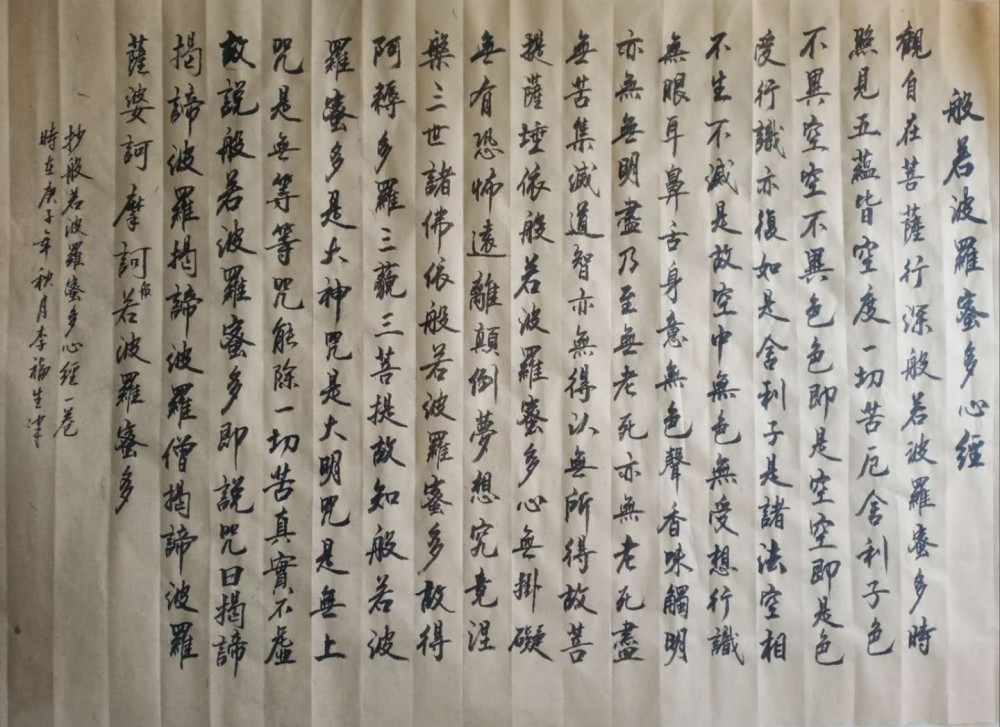 般若波羅蜜多心經
觀自在菩薩行深般若波羅蜜多時
照見五蘊皆空度一切苦厄舍利子色
不異空空不異色色即是空空即是色
受行識亦復如是舍利子是諸法空相
不生不滅是故空中無色無受想行識
無眼耳鼻舌身意無色聲香味觸明
亦無無明盡乃至無老死亦無老死盡
無苦集滅道智亦無得以無所得故菩
提薩埵依般若波羅蜜多心無掛礙
無有恐怖遠離顛倒夢想究竟涅
槃三世諸佛依般若波羅蜜多故得
阿耨多羅三藐三菩提故知般若波
羅蜜多是大神咒是大明咒是無上
咒是無等等咒能除一切苦真實不虛
故說般若波羅蜜多即說咒曰揭諦
揭諦波羅揭諦波羅僧揭諦波羅
薩婆訶 摩訶般若波羅蜜多
抄般若波羅蜜多心經一卷
時在庚子年秋月李福生書